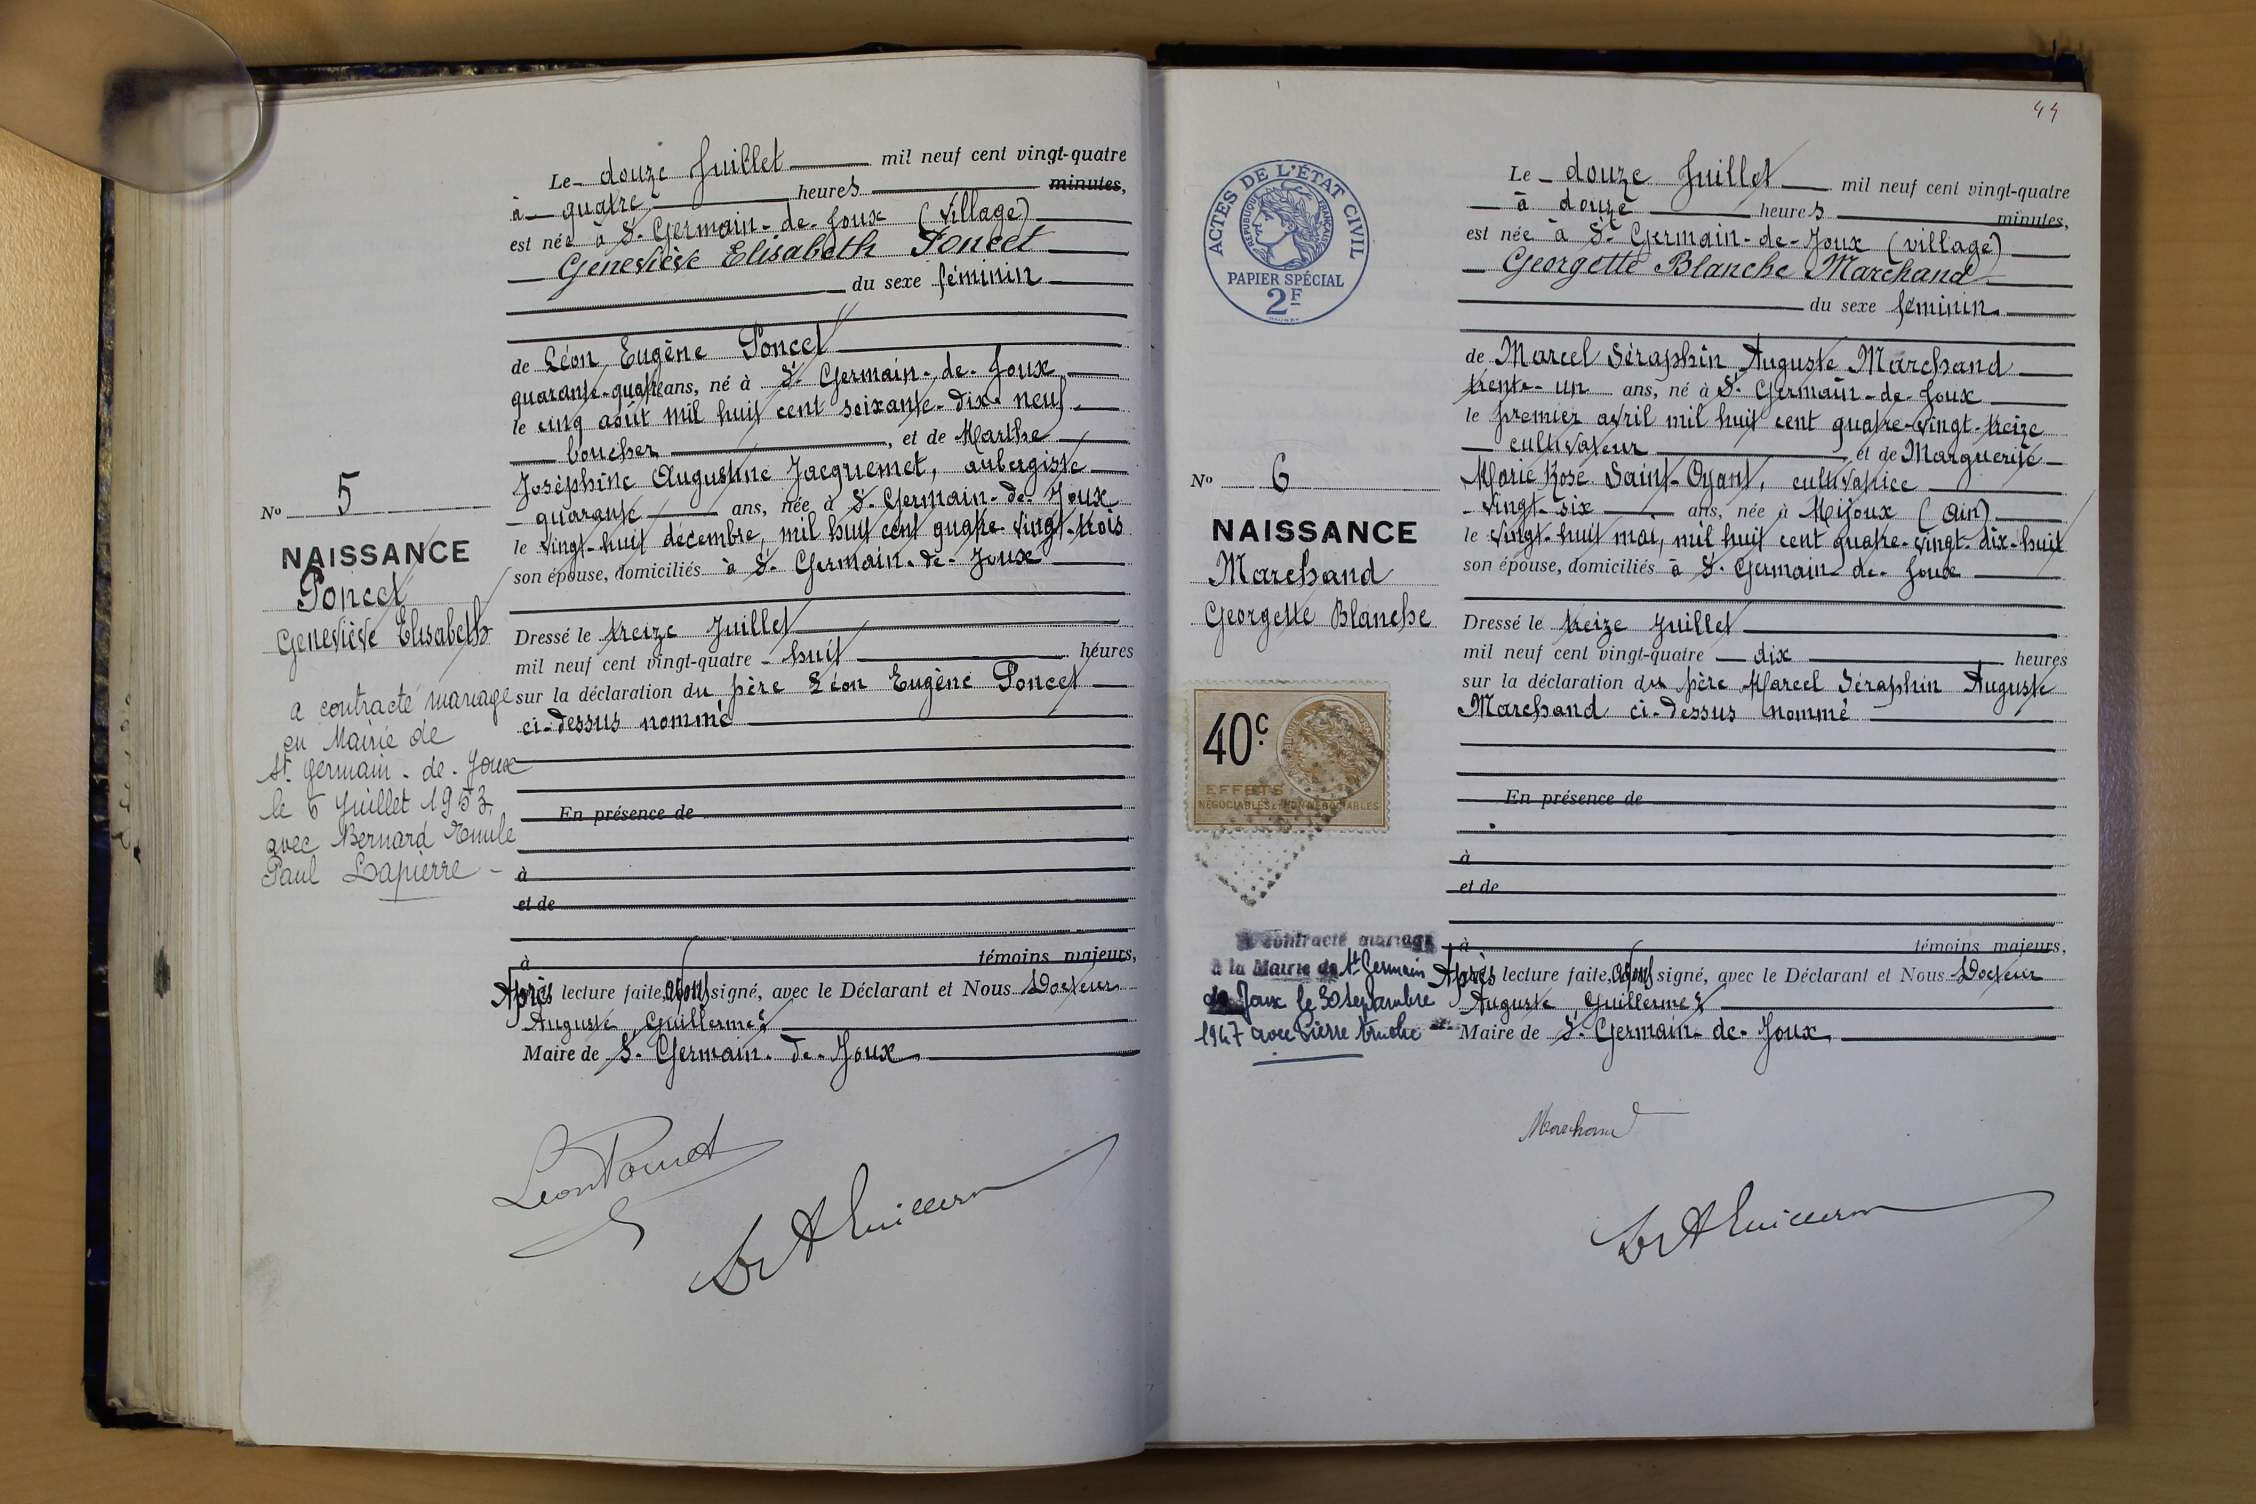 Le douze Juillet mil neuf cent vingt-quatre
à quatre heures minutes,
est née à St. Germain-de-Joux (village)
Geneviève Elisabeth Poncet
du sexe féminin
de Léon Eugène Poncet
quarante-quatre ans, né à St. Germain-de-Joux
le cinq août mil huit cent soixante-dix-neuf
boucher, et de Marthe
Joséphine Augustine Jacquemet, aubergiste
quarante ans, née à St. Germain-de-Joux
le vingt-huit décembre, mil huit cent quatre-vingt-trois
son épouse, domiciliés à St. Germain-de-Joux
Dressé le treize Juillet
mil neuf cent vingt-quatre huit heures
sur la déclaration du père Léon Eugène Poncet
ci-dessus nommé
En présence de
à
et de
à témoins majeurs,
Après lecture faite, avons signé, avec le Déclarant et Nous Docteur
Auguste Guillermet
Maire de St. Germain-de-Joux
No 5
NAISSANCE
Poncet
Geneviève Elisabeth
a contracté mariage
en Mairie de
St. Germain-de-Joux
le 6 Juillet 1953
avec Bernard Emile
Paul Lapierre -
Léon Poncet
44
ACTES DE L'ÉTAT CIVIL
RÉPUBLIQUE FRANÇAISE
PAPIER SPÉCIAL
2F
Le douze Juillet mil neuf cent vingt-quatre
à douze heures minutes,
est née à St. Germain-de-Joux (village)
Georgette Blanche Marchand
du sexe féminin
de Marcel Séraphin Auguste Marchand
trente-un ans, né à St. Germain-de-Joux
le premier avril mil huit cent quatre-vingt-treize
cultivateur et de Marguerite
Marie Rose Saint-Oyant, cultivatrice
vingt-six ans, née à Mijoux (Ain)
le vingt-huit mai, mil huit cent quatre-vingt-dix-huit
son épouse, domiciliés à St. Germain-de-Joux
Dressé le treize Juillet
mil neuf cent vingt-quatre dix heures
sur la déclaration du père Marcel Séraphin Auguste
Marchand ci-dessus nommé
En présence de
à
et de
à témoins majeurs,
Après lecture faite, avons signé, avec le Déclarant et Nous Docteur
Auguste Guillermet
Maire de St. Germain-de-Joux
No 6
NAISSANCE
Marchand
Georgette Blanche
40c.
EFFETS
NÉGOCIABLES & NON NÉGOCIABLES
A contracté mariage
à la Mairie de St Germain
de Joux le 30 septembre
1947 avec Pierre
Marchand